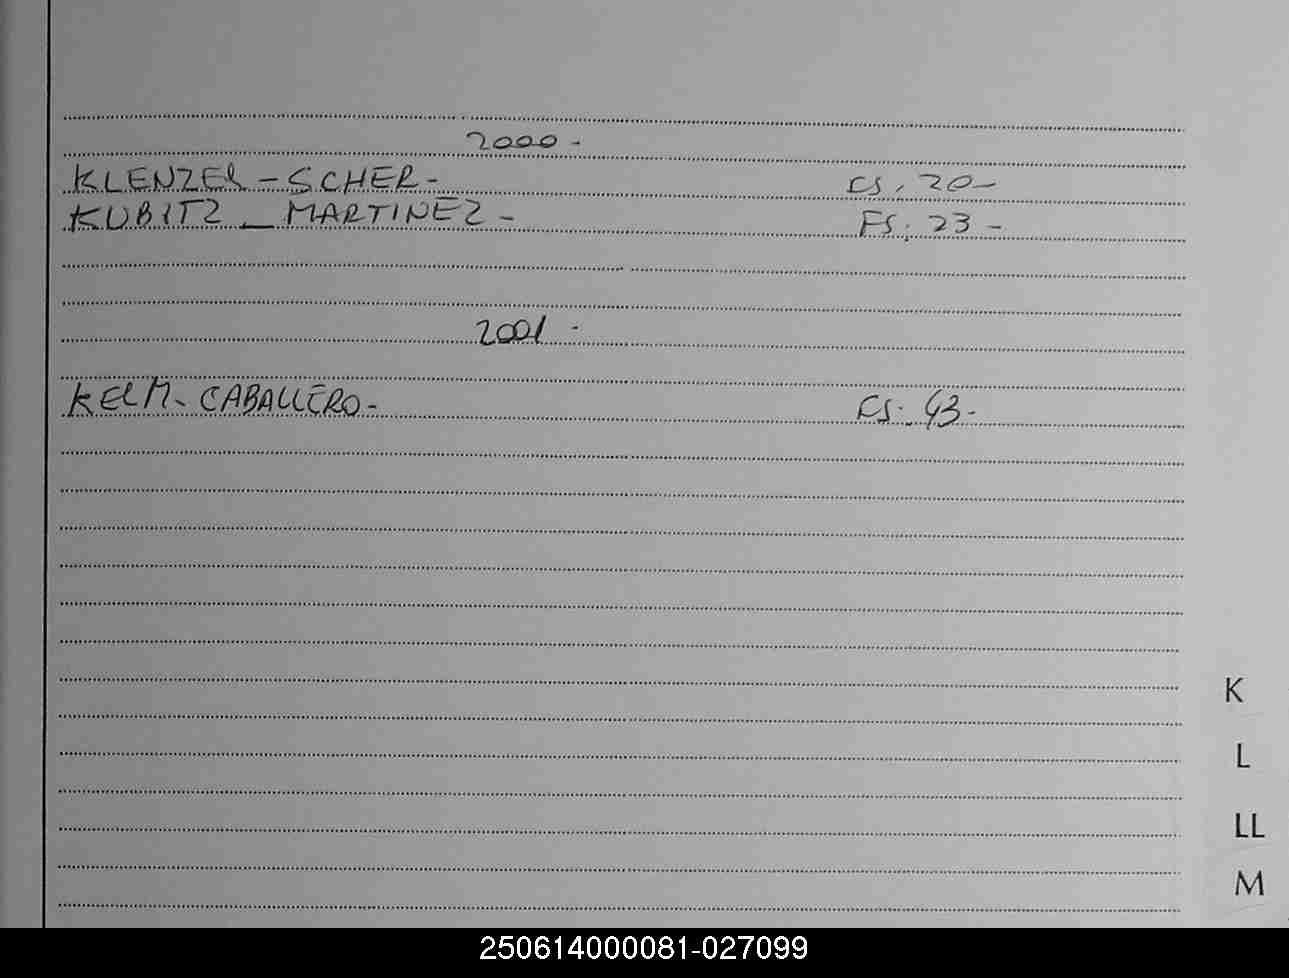 2000-
KLENZER-SCHER- FS. 20-
KUBITZ_MARTINEZ- FS. 23-
2001-
KELM-CABALLERO- FS. 43-
K
L
LL
M
250614000081-027099